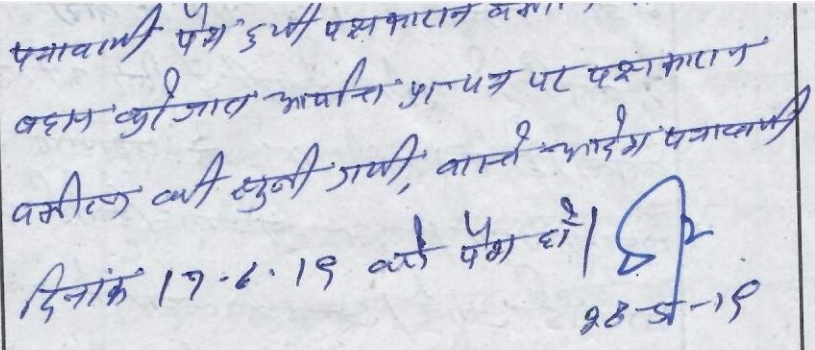 पत्रावली पेश हुयी पक्षकारान
बहस की जात आपत्ति प्रा पत्र पर पक्षकारान
वकील की सुनी गयी, वास्ते आदेश पत्रावली
दिनांक 17-6-19 को पेश हो।
28-5-19